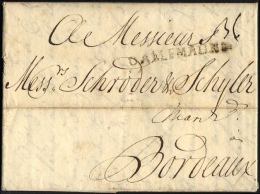 A Messieur
D'ALLEMAGNE
Mess.rs Schröder & Schÿler
March.d
à
Bordeaux